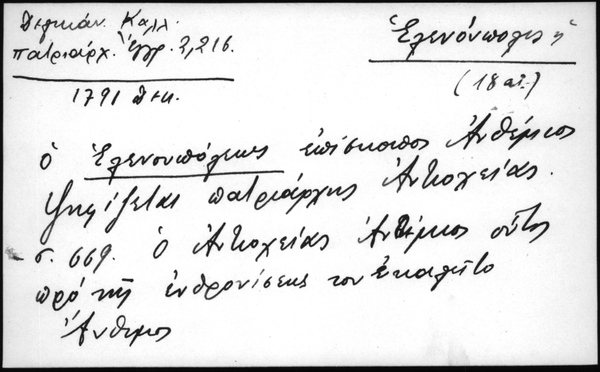 Δελικάν. Καλλ.
πατριαρχ. Ἔγγρ. 2,216.
1791 Δεκ.
Ἑλενούπολις ἡ
(18 αἰ.)
ὁ Ἑλενουπόλεως ἐπίσκοπος Ἀνθέμιος
ψηφίζεται πατριάρχης Ἀντιοχείας.
σ. 669. ὁ Ἀντιοχείας Ἀνθέμιος οὗτος
πρό τῆς ἐνθρονίσεως του ἐκαλεῖτο
Ἄνθιμος